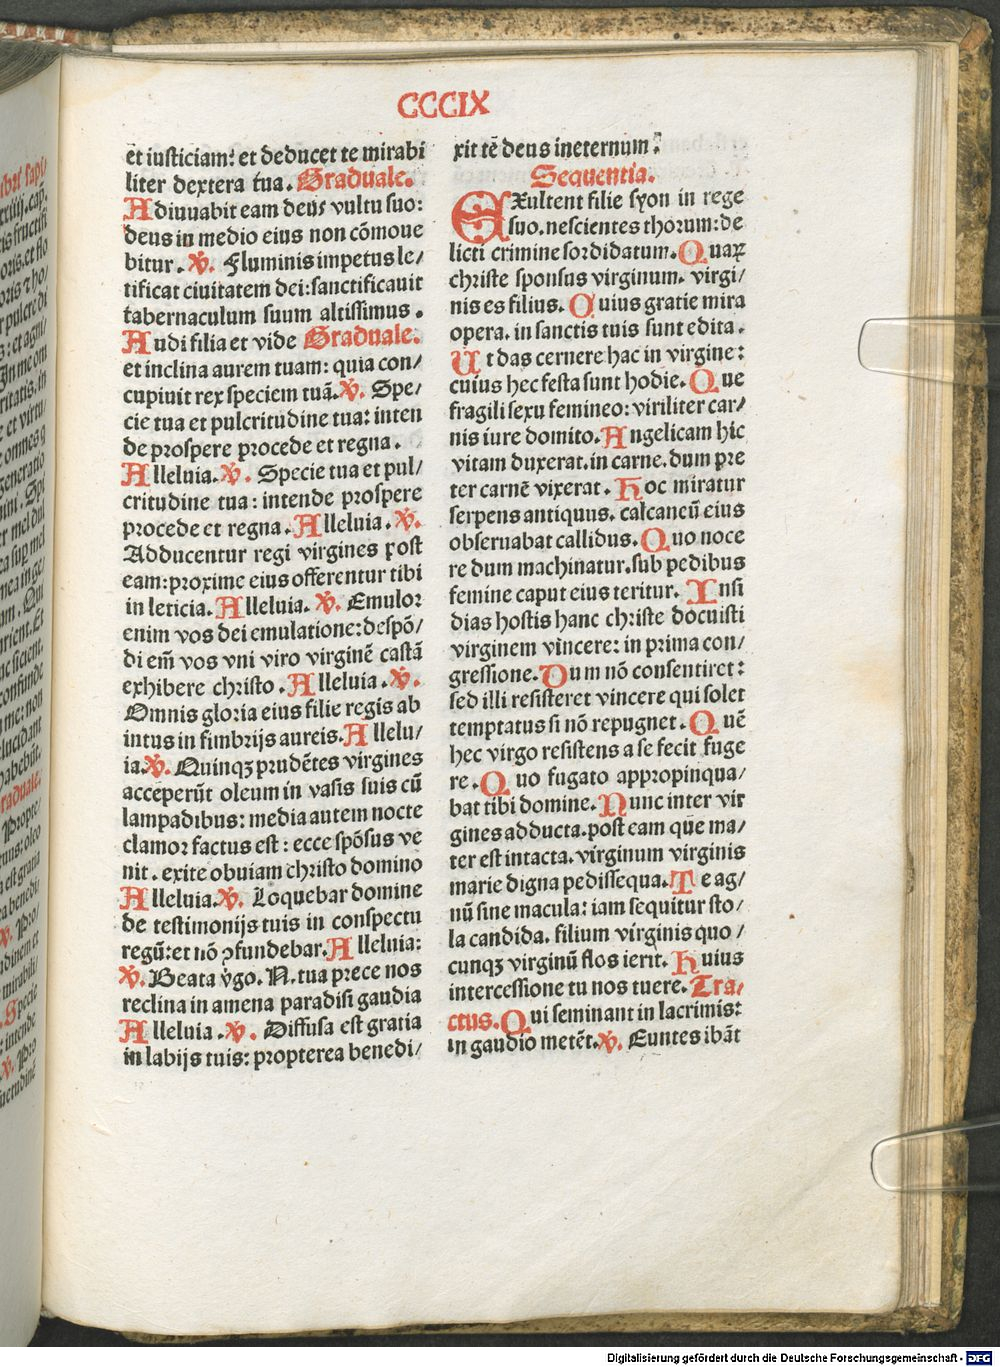 CCCIX
et iusticiam: et deducet te mirabi
liter dextera tua. Graduale.
Adiuuabit eam deus vultu suo:
deus in medio eius non cōmoue
bitur. ℣. Fluminis impetus le/
tificat ciuitatem dei: sanctificauit
tabernaculum suum altissimus.
Audi filia et vide Graduale.
et inclina aurem tuam: quia con/
cupiuit rex speciem tuā. ℣. Spe/
cie tua et pulcritudine tua: inten
de prospere procede et regna.
Alleluia. ℣. Specie tua et pul/
critudine tua: intende prospere
procede et regna. Alleluia. ℣.
Adducentur regi virgines post
eam: proxime eius offerentur tibi
in leticia. Alleluia. ℣. Emulor
enim vos dei emulatione: despō/
di em̄ vos vni viro virginē castā
exhibere christo. Alleluia. ℣.
Omnis gloria eius filie regis ab
intus in fimbrijs aureis. Allelu/
ia. ℣. Quinqꝫ prudētes virgines
acceperūt oleum in vasis suis cū
lampadibus: media autem nocte
clamor factus est: ecce spōsus ve
nit. exite obuiam christo domino
Alleluia. ℣. Loquebar domine
de testimonijs tuis in conspectu
regū: et nō ꝯfundebar. Alleluia:
℣. Beata v̄go. N. tua prece nos
reclina in amena paradisi gaudia
Alleluia. ℣. Diffusa est gratia
in labijs tuis: propterea benedi/
xit tē deus ineternum.
Sequentia.
EXultent filie syon in rege
suo. nescientes thorum: de
licti crimine sordidatum. Quaꝝ
christe sponsus virginum. virgi/
nis es filius. Quius gratie mira
opera. in sanctis tuis sunt edita.
Ut das cernere hac in virgine:
cuius hec festa sunt hodie. Que
fragili sexu femineo: viriliter car/
nis iure domito. Angelicam hic
vitam duxerat. in carne. dum pre
ter carnē vixerat. Hoc miratur
serpens antiquus. calcaneū eius
obseruabat callidus. Quo noce
re dum machinatur. sub pedibus
femine caput eius teritur. Insi
dias hostis hanc christe docuisti
virginem vincere: in prima con/
gressione. Dum nō consentiret:
sed illi resisteret vincere qui solet
temptatus si nō repugnet. Quē
hec virgo resistens a se fecit fuge
re. Quo fugato appropinqua/
bat tibi domine. Nunc inter vir
gines adducta. post eam que ma/
ter est intacta. virginum virginis
marie digna pedissequa. Te ag/
nū sine macula: iam sequitur sto/
la candida. filium virginis quo/
cunqꝫ virginū flos ierit. Huius
intercessione tu nos tuere. Tra/
ctus. Qui seminant in lacrimis:
in gaudio metēt. ℣. Euntes ibāt
Digitalisierung gefördert durch die Deutsche Forschungsgemeinschaft - DFG